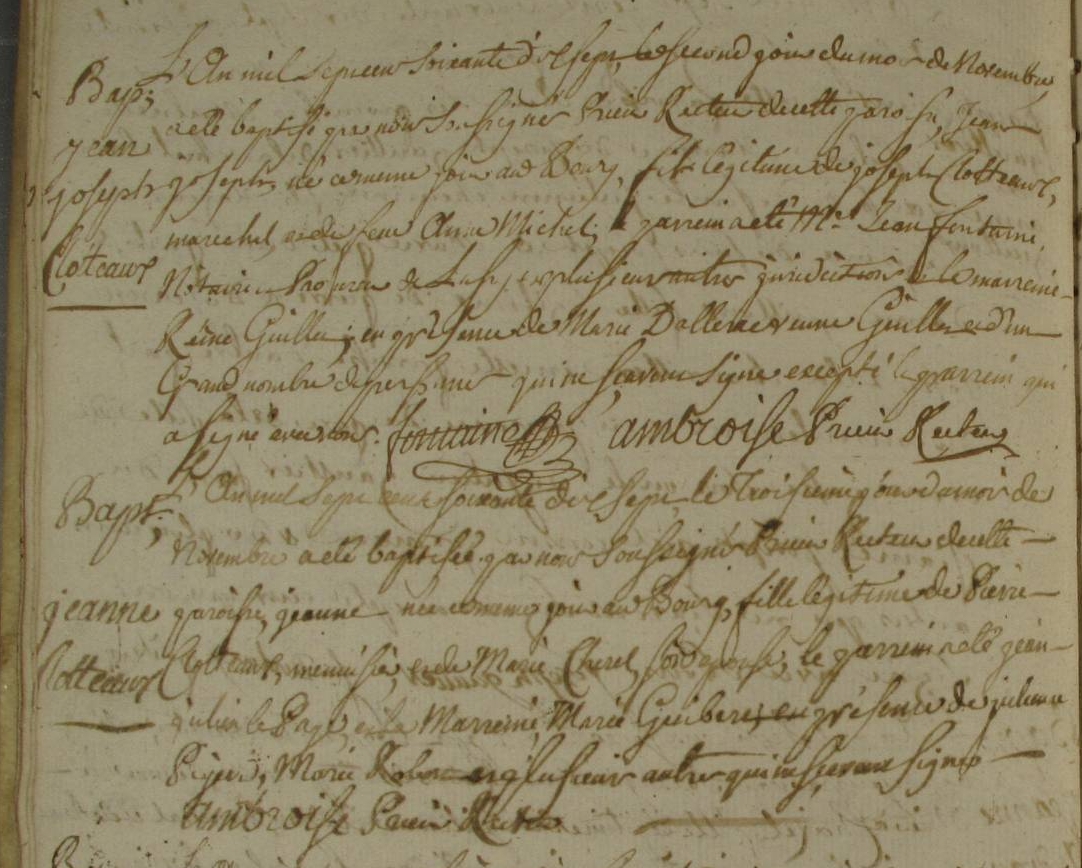 Bap;
jean
joseph
Cloteaux
L'An mil sept cens soixante dixsept, le second jour du mois de Novembre
a été baptisé par nous soussigné Prieur Recteur de cette paroisse, Jean
joseph, né ce meme jour au Bourg, fils légitime de joseph Clotteaux,
marechal, et de feue Anne Michel; le parrein a été Mre. Jean fontaine,
Notaire et Procureur de et plusieurs autres jurisdictions et la marreine
Reine Guillet; en presence de Marie Dallerac veuve Guillet et d'un
Grand nombre de personnes qui ne scavent signer excepté le parrein qui
a signé avec nous. fontaine ambroise Prieur Recteur
Bapt.
jeanne
Cotteaux
L'An mil sept cent soixante dix sept, le Troisieme jour du mois de
Novembre a été baptisée par nous soussigné Prieur Recteur de cette
paroisse, jeanne née ce meme jour au Bourg, fille légitime de Pierre
Clotteaux, menuisier, et de Marie Cherel, son epouse; le parrein a été jean
julien le Page, et la Marreine Marie Guibert; en présence de julienne
Marie Robert et plusieurs autres qui ne scavent signer
ambroise Prieur Recteur